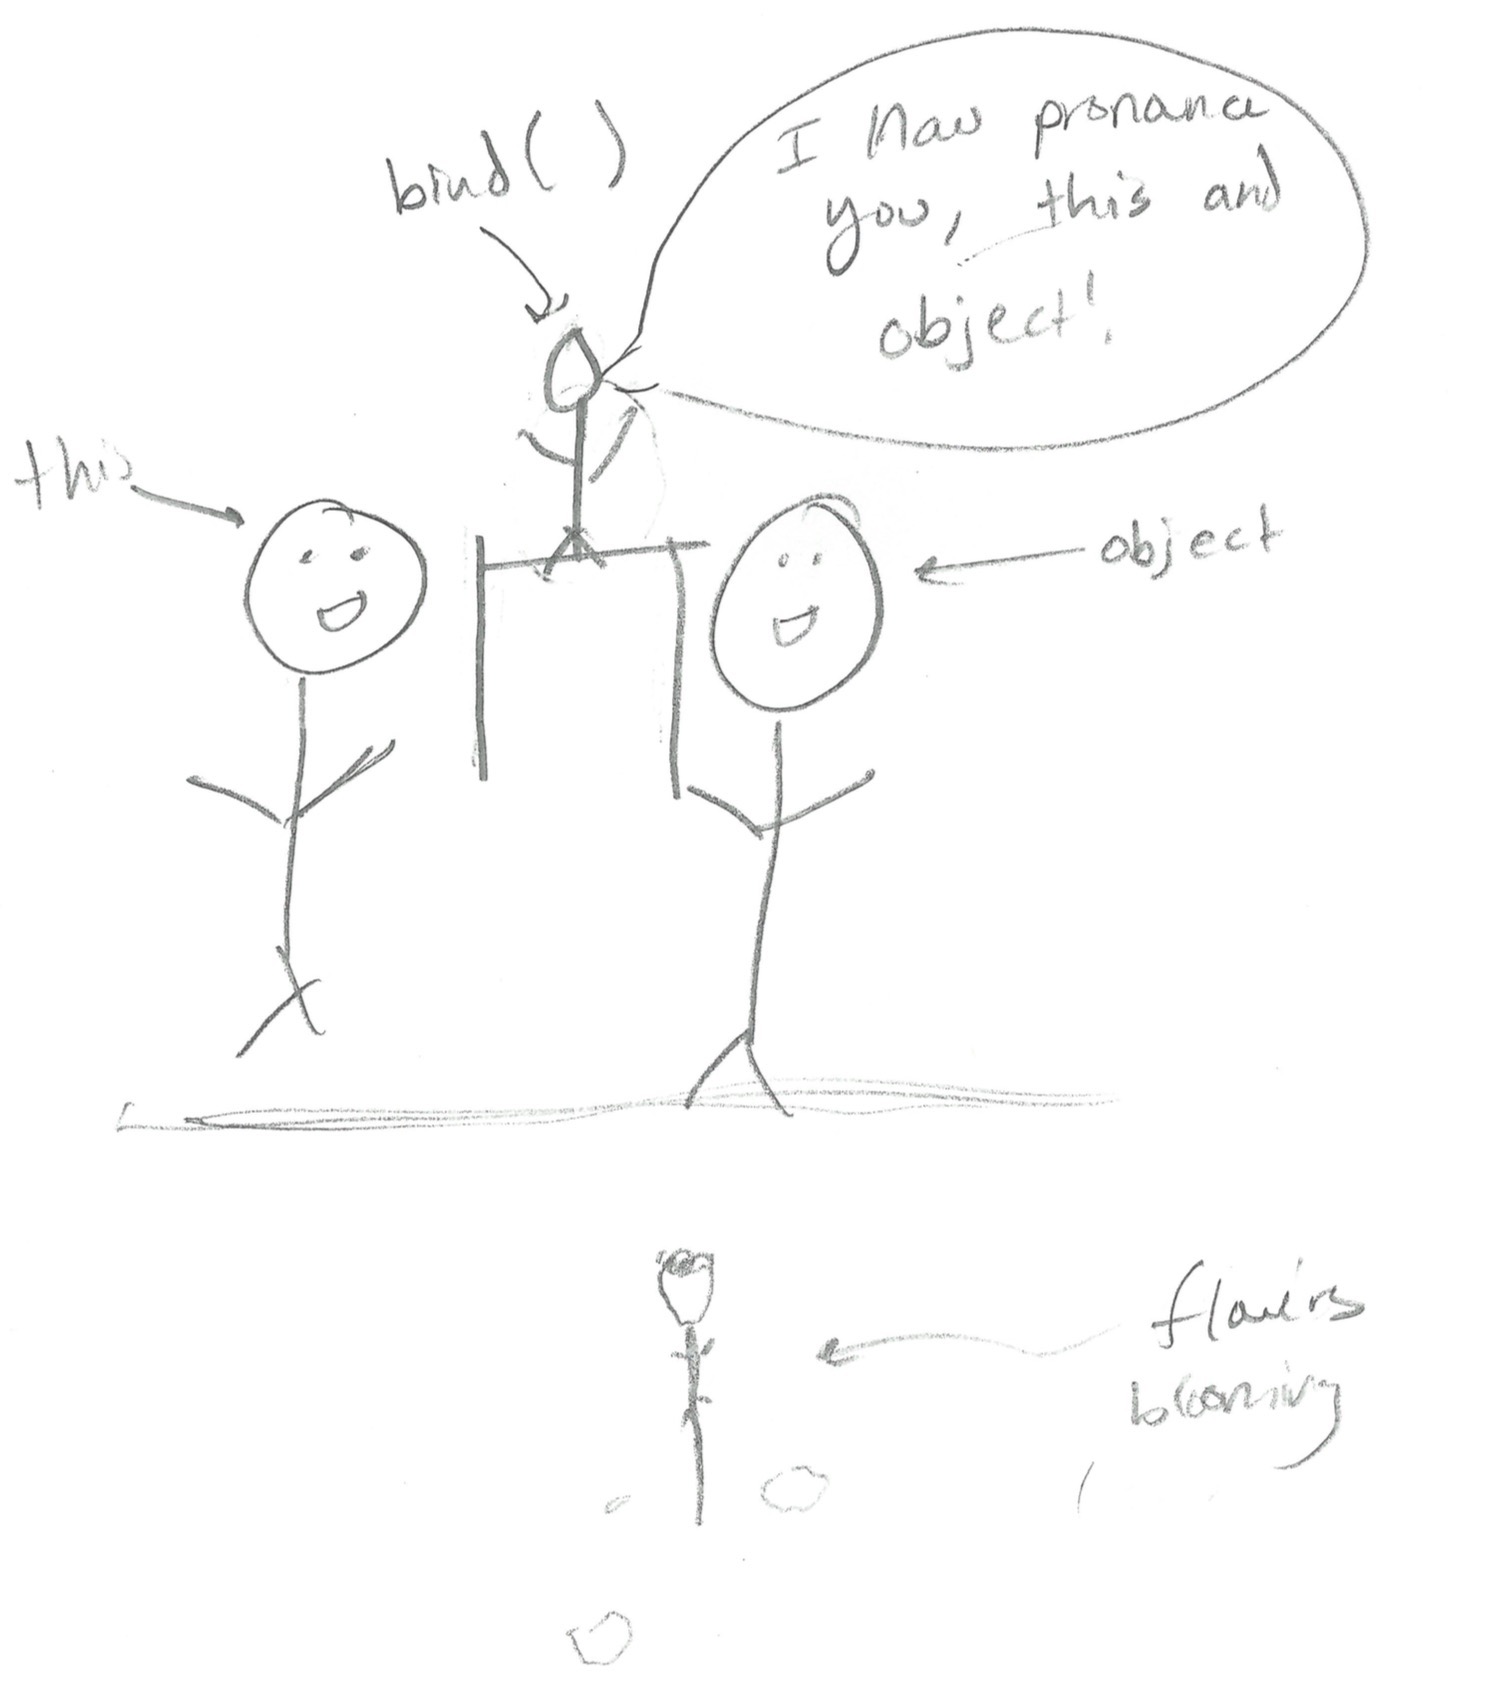 bind()
I now pronounce
you, this and
object!
this
object
flowers
blooming